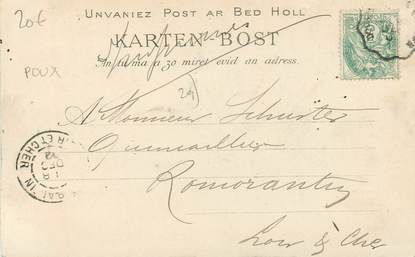 20€
Unvaniez Post ar Bed Holl
KARTEN BOST
POUX
An tu ma a zo miret evid an adress.
29
A Monsieur Schuster
Quincailler
Romorantin
Loir & Cher
ET CHER